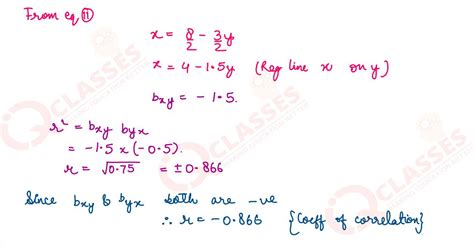 From eq (11)
x = 8/2 - 3/2 y
x = 4 - 1.5y (Reg line x on y)
bxy = - 1.5.
r² = bxy byx
= -1.5 x (-0.5).
r = √0.75 = ± 0.866
Since bxy & byx both are -ve
∴ r = -0.866 {Coeff of correlation}
CLASSES
CLASSES
CLASSES